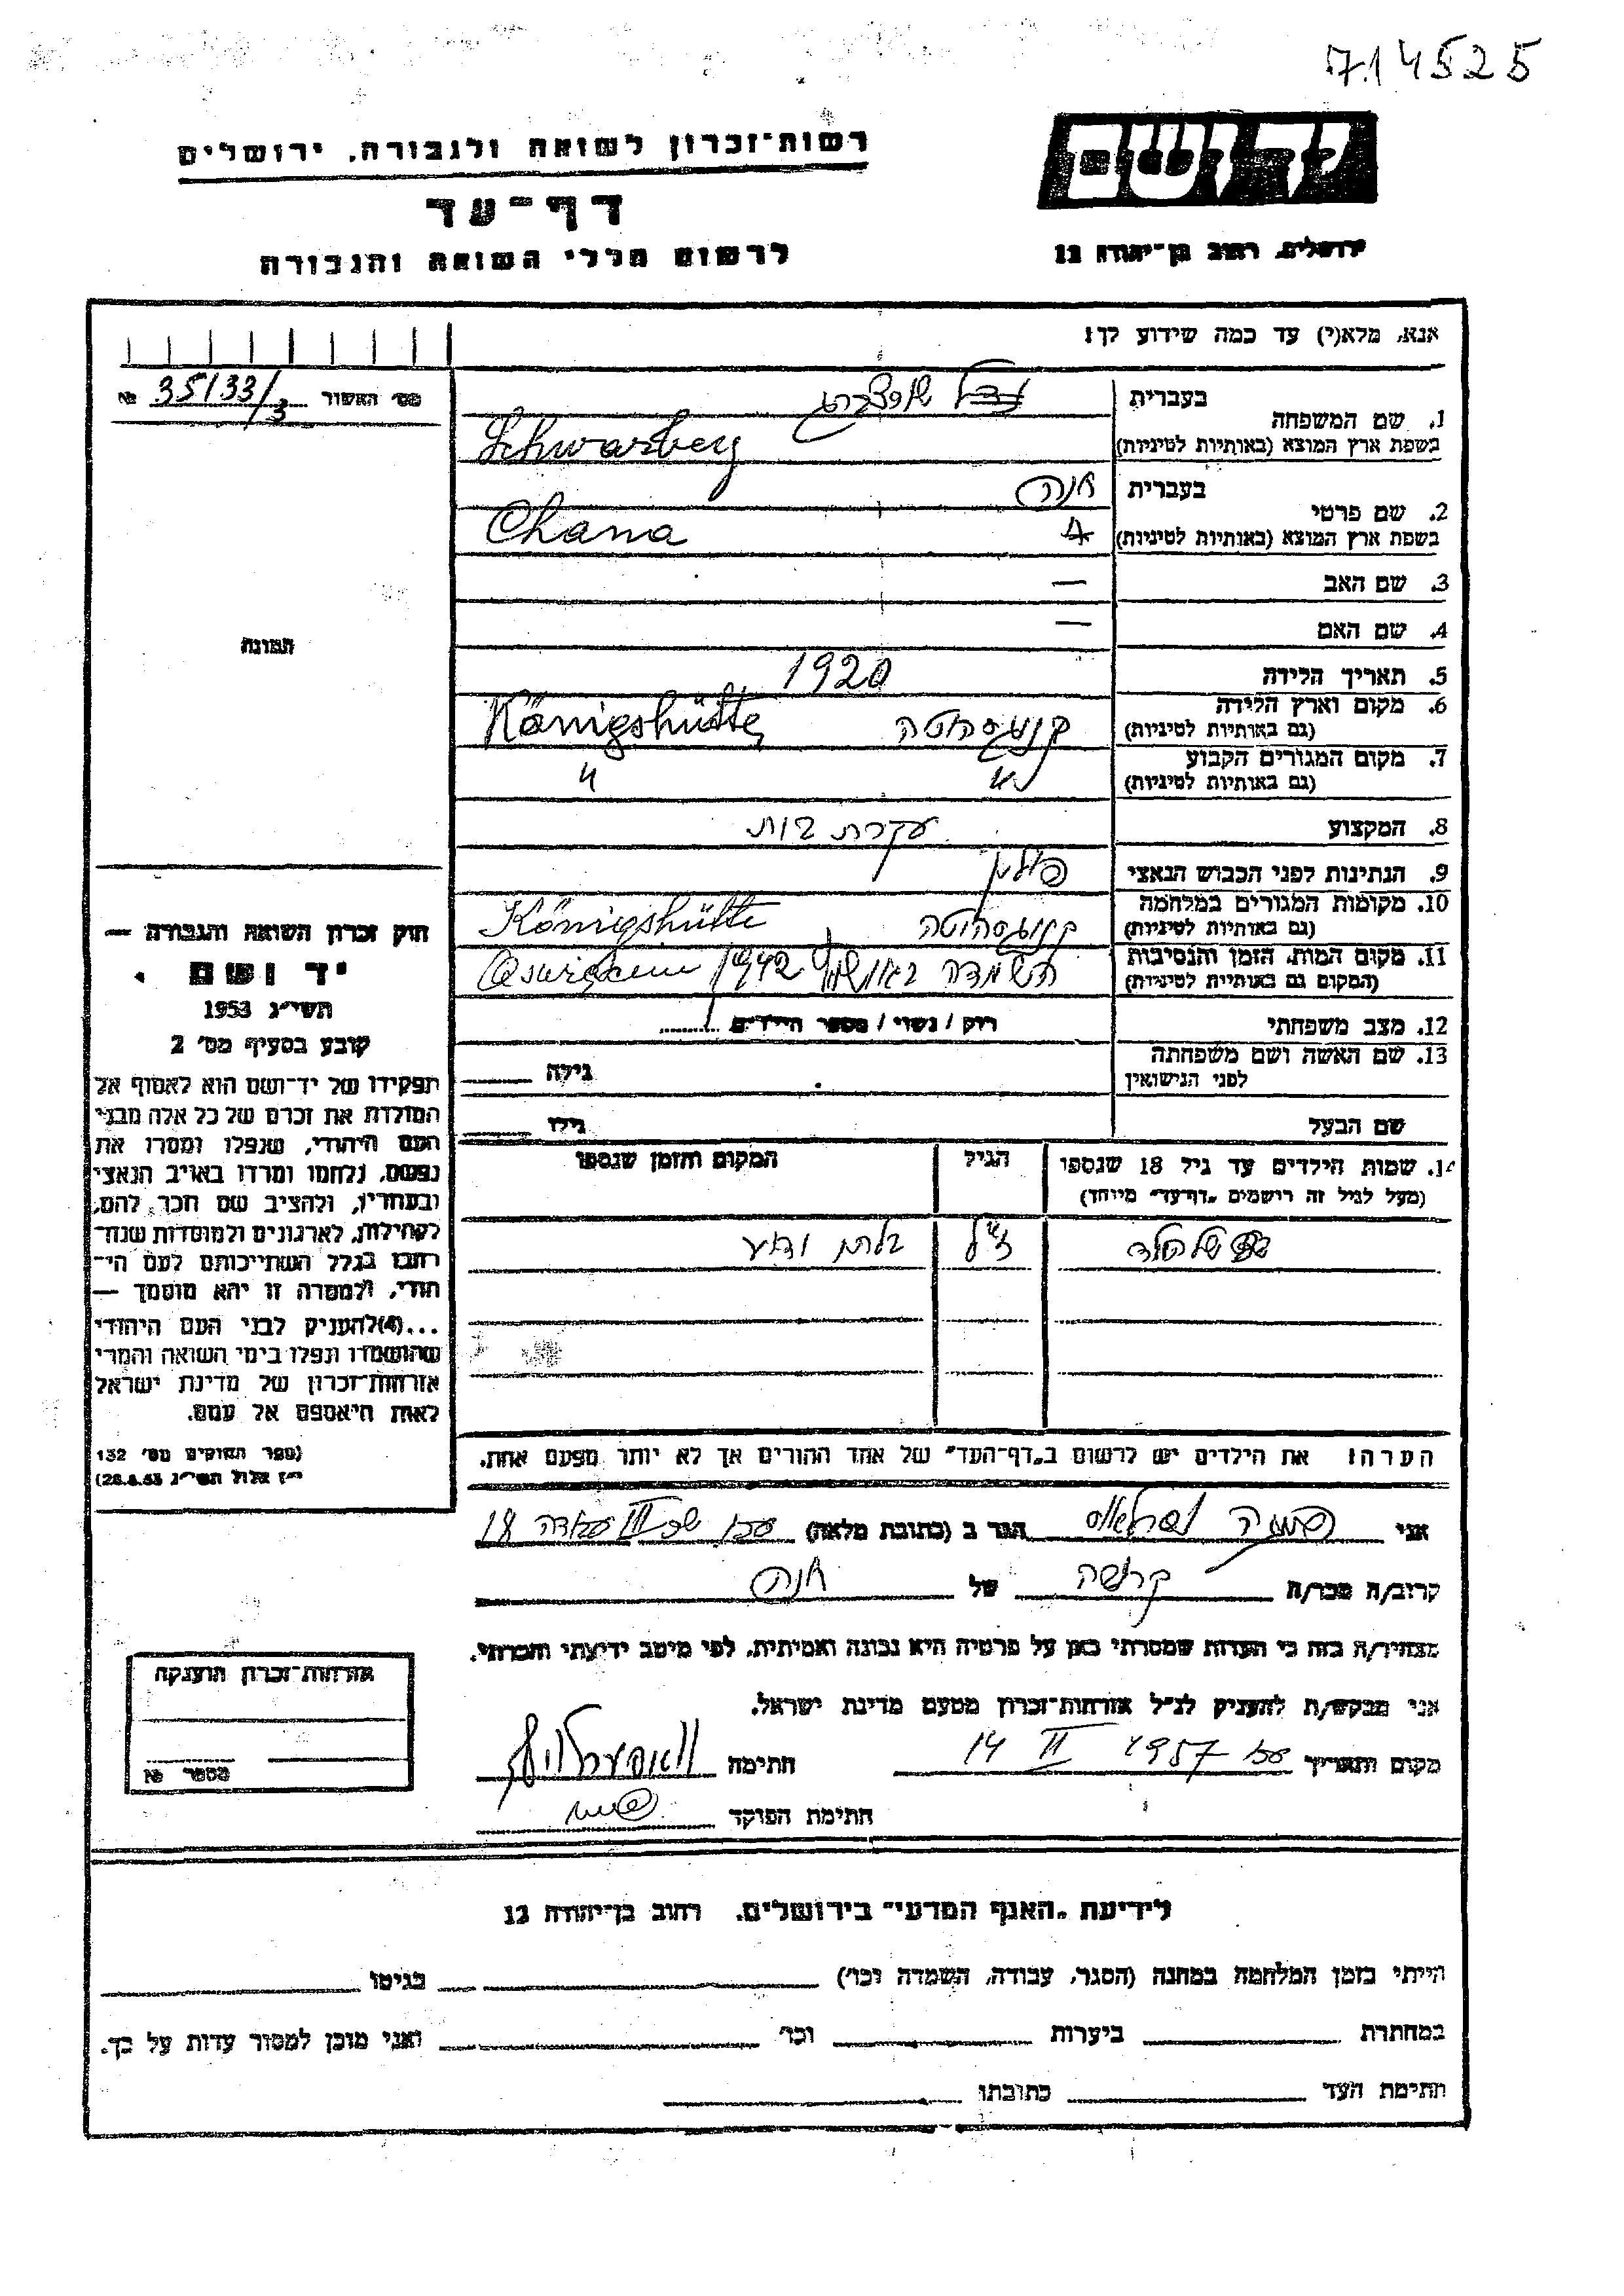 714525
יד ושם
רשות־זכרון לשואה ולגבורה, ירושלים
דף־עד
ירושלים, רחוב בן־יהודה 12
לרשום חללי השואה והגבורה
אנא, מלא(י) עד כמה שידוע לך!
מס׳ האשור 35133/3 №
בעברית
1. שם המשפחה
בשפת ארץ המוצא (באותיות לטיניות) Schwarzberg
בעברית חנה
2. שם פרטי
בשפת ארץ המוצא (באותיות לטיניות) Chana
3. שם האב —
4. שם האם —
תמונה
5. תאריך הלידה 1920
6. מקום וארץ הלידה
(גם באותיות לטיניות) קניגסהוטה Königshütte
7. מקום המגורים הקבוע
(גם באותיות לטיניות) "
8. המקצוע עקרת בית
9. הנתינות לפני הכבוש הנאצי פולין
10. מקומות המגורים במלחמה
(גם באותיות לטיניות) קניגסהוטה Königshütte
11. מקום המות, הזמן והנסיבות
(המקום גם באותיות לטיניות) 1942
12. מצב משפחתי רווק / נשוי / מספר הילדים
13. שם האשה ושם משפחתה
לפני הנישואין גילה
שם הבעל גילו
14. שמות הילדים עד גיל 18 שנספו הגיל המקום והזמן שנספו
(מעל לגיל זה רושמים „דף־עד״ מיוחד)
חוק זכרון השואה והגבורה —
יד ושם
תשי״ג 1953
קובע בסעיף מס׳ 2
תפקידו של יד־ושם הוא לאסוף אל
המולדת את זכרם של כל אלה מבני
העם היהודי, שנפלו ומסרו את
נפשם, נלחמו ומרדו באויב הנאצי
ובעוזריו, ולהציב שם וזכר להם,
לקהילות, לארגונים ולמוסדות שנח־
רבו בגלל השתייכותם לעם הי־
הודי, ולמטרה זו יהא מוסמך —
...(4) להעניק לבני העם היהודי
שהושמדו ונפלו בימי השואה והמרי
אזרחות־זכרון של מדינת ישראל
לאות היאספם אל עמם.
(ספר החוקים מס׳ 132
י״ז אלול תשי״ג 28.8.53)
הערה! את הילדים יש לרשום ב„דף־העד״ של אחד ההורים אך לא יותר מפעם אחת.
אני הגר ב (כתובת מלאה)
קרוב/ה מכר/ה קרובה של חנה
מצהיר/ה בזה כי העדות שמסרתי כאן על פרטיה היא נכונה ואמיתית, לפי מיטב ידיעתי והכרתי.
אני מבקש/ת להעניק לנ״ל אזרחות־זכרון מטעם מדינת ישראל.
מקום ותאריך 1957 II 14 חתימה
חתימת הפוקד
אזרחות־זכרון הוענקה
מספר №
לידיעת „האגף המדעי״ בירושלים, רחוב בן־יהודה 12
הייתי בזמן המלחמה במחנה (הסגר, עבודה, השמדה וכו׳) בגיטו
במחתרת ביערות וכו׳ ואני מוכן למסור עדות על כך.
חתימת העד כתובתו